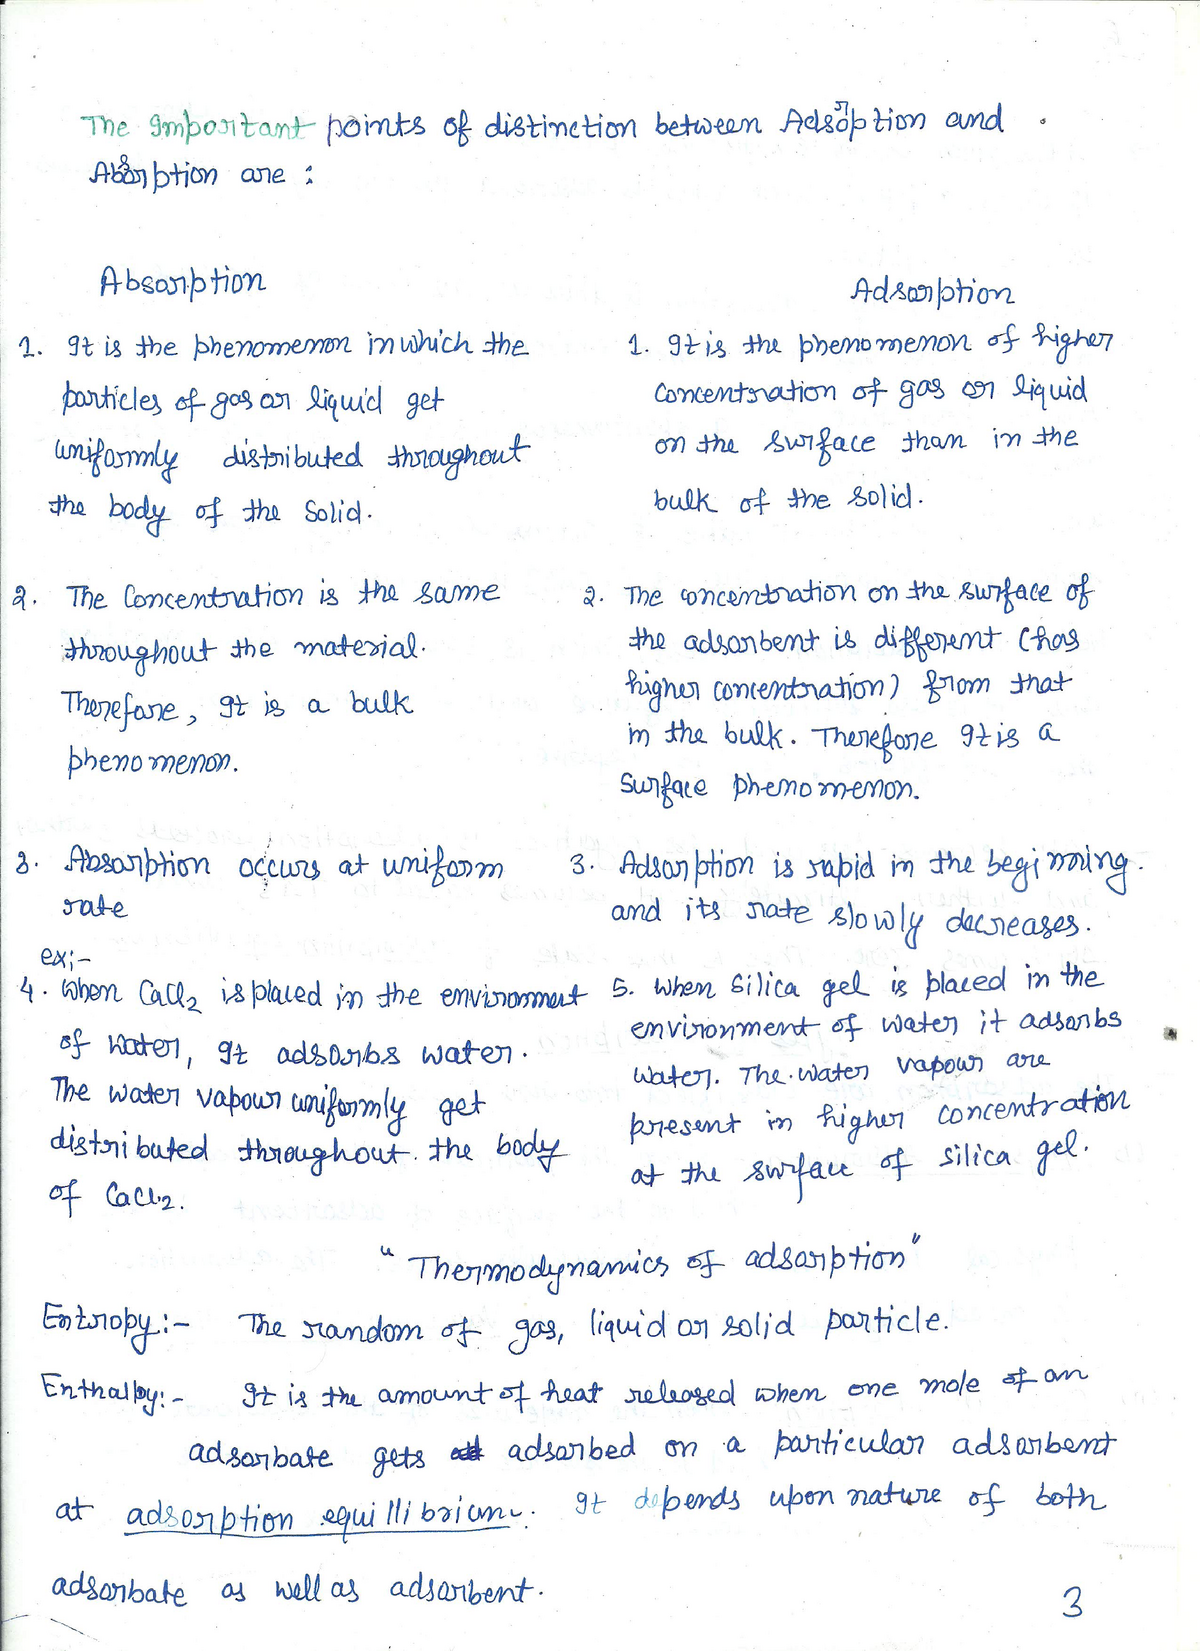 The Important points of distinction between Adsorption and
Absorption are :
Absorption
1. It is the phenomenon in which the
particles of gas or liquid get
uniformly distributed throughout
the body of the Solid.
2. The Concentration is the same
throughout the material.
Therefore, It is a bulk
phenomenon.
3. Absorption occurs at uniform
rate
ex;-
4. When CaCl2 is placed in the environment
of water, It adsorbs water.
The water vapour uniformly get
distributed throughout. the body
of CaCl2.
Adsorption
1. It is the phenomenon of higher
Concentration of gas or liquid
on the surface than in the
bulk of the solid.
2. The concentration on the surface of
the adsorbent is different (has
higher concentration) from that
in the bulk. Therefore It is a
surface phenomenon.
3. Adsorption is rapid in the beginning.
and its rate slowly decreases.
5. When Silica gel is placed in the
environment of water it adsorbs
water. The water vapour are
present in higher concentration
at the surface of silica gel.
"Thermodynamics of adsorption"
Entropy:- The random of gas, liquid or solid particle.
Enthalpy:- It is the amount of heat released when one mole of an
adsorbate gets adsorbed on a particular adsorbent
at adsorption equillibrium. It depends upon nature of both
adsorbate as well as adsorbent.
3